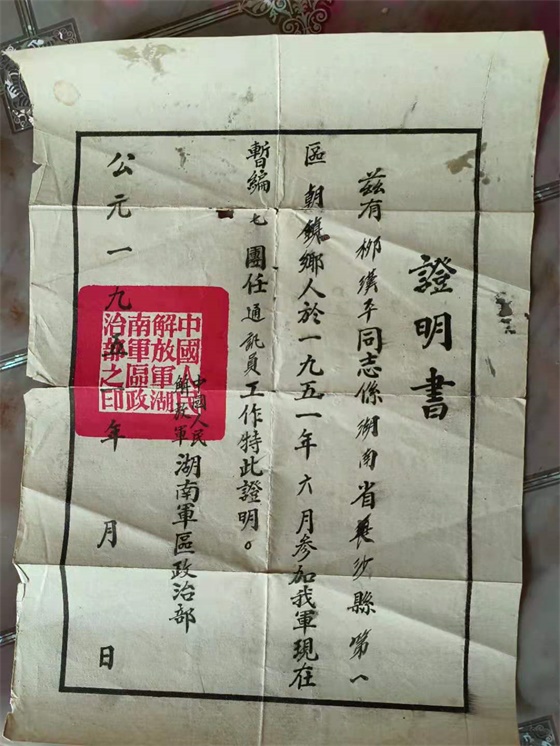 證明書
茲有柳漢平同志係湖南省長沙縣第一
區朝鄉人於一九五一年六月參加我軍現在
暫編七團任通訊員工作特此證明。
中國人民
解放軍
湖南軍區政治部
公元一九五年 月 日
中國人民
解放軍湖
南軍區政
治部之印